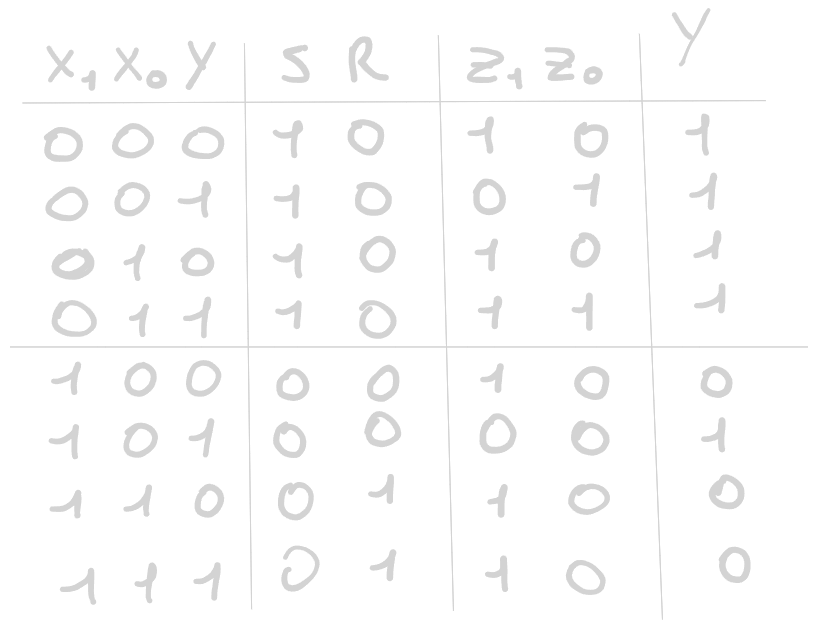 X₁ X₀ Y S R Z₁ Z₀ Y
0 0 0 1 0 1 0 1
0 0 1 1 0 0 1 1
0 1 0 1 0 1 0 1
0 1 1 1 0 1 1 1
1 0 0 0 0 1 0 0
1 0 1 0 0 0 0 1
1 1 0 0 1 1 0 0
1 1 1 0 1 1 0 0